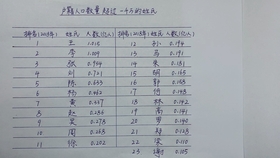 户籍人口数量超过一千万的姓氏
排名(2018年) 姓氏 人数(亿人) 排名(2018年) 姓氏 人数(亿人)
1 王 1.015 12 孙 0.194
2 李 1.009 13 马 0.191
3 张 0.954 14 朱 0.181
4 刘 0.721 15 胡 0.165
5 陈 0.633 16 郭 0.158
6 杨 0.462 17 何 0.148
7 黄 0.337 18 林 0.142
8 赵 0.286 19 高 0.141
9 吴 0.278 20 罗 0.140
10 周 0.268 21 郑 0.128
11 徐 0.202 22 梁 0.110
23 谢 0.105